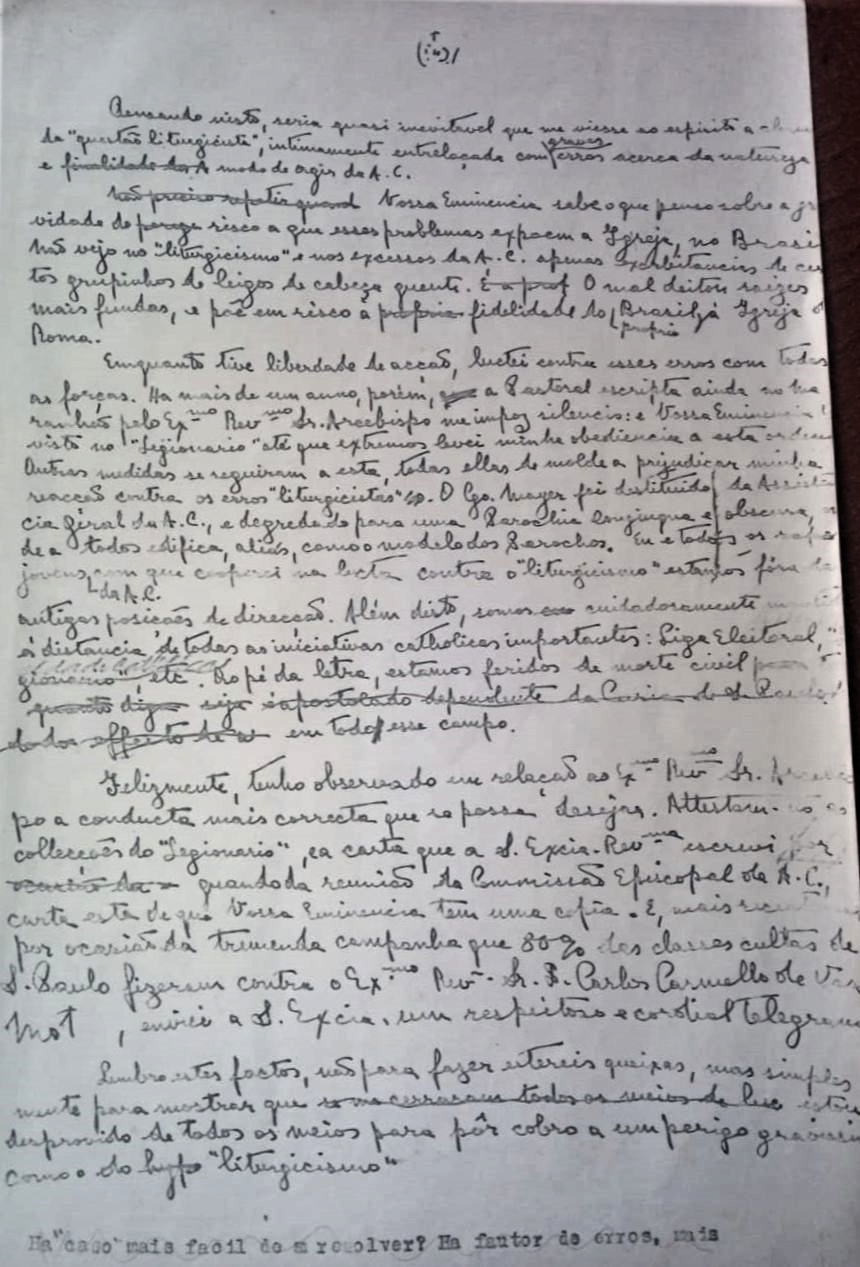 Pensando nisto, seria quasi inevitavel que me viesse ao espirito a
da "questão liturgicista", intimamente entrelaçada com graves erros acerca da natureza
e finalidade da A modo de agir da A.C.
Não preciso repetir quand Vossa Eminencia sabe o que penso sobre a gra
vidade do porque risco a que esses problemas expoem a Igreja, no Brasil
Não vejo no "liturgicismo" e nos excessos da A.C. apenas exorbitancias de cer
tos grupinhos de leigos de cabeça quente. É a prof O mal deitou raizes
mais fundas, e põe em risco a propria fidelidade do proprio Brasil á Igreja de
Roma.
Emquanto tive liberdade de acção, luctei contra esses erros com todas
as forças. Ha mais de um anno, porém, que a Pastoral escripta ainda no Ma
ranhão pelo Exmo Revmo Sr. Arcebispo me impoz silencio: e Vossa Eminencia
visto no "Legionario" até que extremos levei minha obediencia a esta ordem
Outras medidas se seguiram a esta, todas ellas de molde a prejudicar minha
reacção contra os erros "liturgicistas". O Cgo. Mayer foi destituido da Assisten
cia Geral da A.C., e degredado para uma Parochia longinqua e obscura, on
de a todos edifica, aliás, como o modelo dos Parochos. Eu e todos os rapazes
jovens, com que cooperei na lucta contra o "liturgicismo" estamos fóra de
da A.C.
antigas posições de direcção. Além disto, somos cuidadosamente
á distancia de todas as iniciativas catholicas importantes: Liga Eleitoral, "
gionario" etc. Ao pé da letra, estamos feridos de morte civil para
quanto diga seja apostolado dependente da Curia de S. Paulo
dado effeito de em todo esse campo.
Felizmente, tenho observado em relação ao Exmo Revmo Sr. Arcebis
po a conducta mais correcta que se possa desejar. Attestam-no as
collecções do "Legionario", ea carta que a S. Excia. Revma escrevi por
occasião da quando da reunião da Commissão Episcopal da A.C.,
carta esta de que Vossa Eminencia tem uma copia. E, mais recent
por occasião da tremenda campanha que 80% das classes cultas de
S. Paulo fizeram contra o Exmo Revmo Sr. D. Carlos Carmello de Vas
Mot , enviei a S. Excia. um respeitoso e cordial telegramma
Lembro estes factos, não para fazer estereis queixas, mas simples
mente para mostrar que se me cerraram todos os meios de luc estou
desprovido de todos os meios para pôr cobro a um perigo gravissi
como o do hyp "liturgicismo"
Ha "caso" mais facil de m resolver? Ha fautor de erros, mais